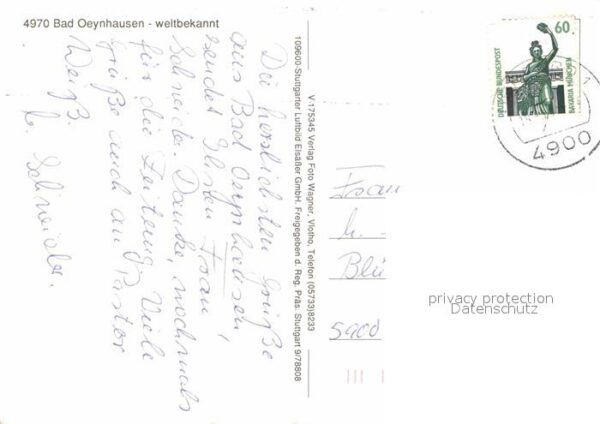 4970 Bad Oeynhausen - weltbekannt
Die herzlichsten Grüße
aus Bad Oeynhausen
sendet Ihnen Frau
Schneider. Danke, nochmals
für die Zeitung. Viele
Grüße auch an Pastor
Weiß.
Schneider.
V 175345 Verlag Foto Wagner, Vlotho, Telefon (05733)8233
109600-Stuttgarter Luftbild Elsäßer GmbH. Freigegeben d. Reg. Präs. Stuttgart 9/78808
60
DEUTSCHE BUNDESPOST
BAVARIA MÜNCHEN
4900
Frau
Blü
5900
privacy protection
Datenschutz